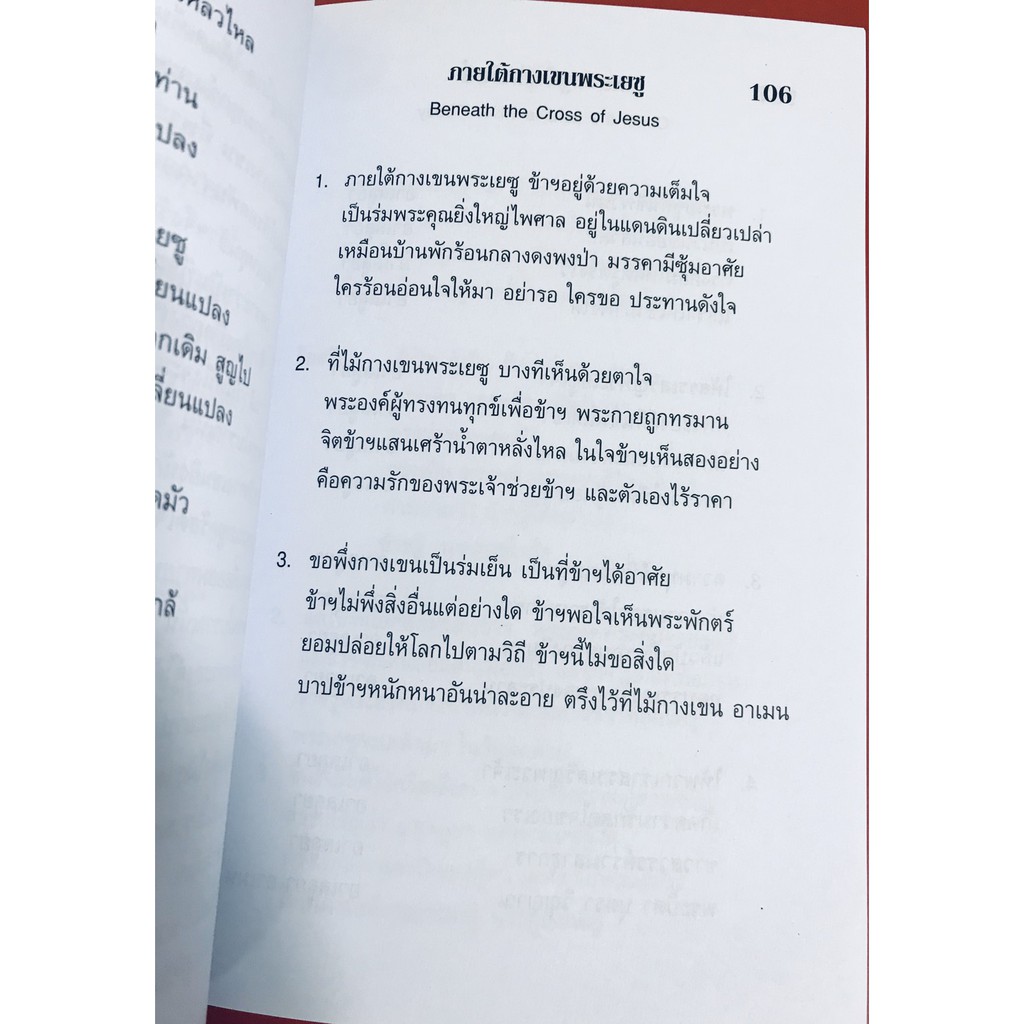 ท่าน
ปลง
ภายใต้กางเขนพระเยซู
106
Beneath the Cross of Jesus
1. ภายใต้กางเขนพระเยซู ข้าฯอยู่ด้วยความเต็มใจ
เป็นร่มพระคุณยิ่งใหญ่ไพศาล อยู่ในแดนดินเปลี่ยวเปล่า
เหมือนบ้านพักร้อนกลางดงพงป่า มรรคามีซุ้มอาศัย
ใครร้อนอ่อนใจให้มา อย่ารอ ใครขอ ประทานดังใจ
2. ที่ไม้กางเขนพระเยซู บางทีเห็นด้วยตาใจ
พระองค์ผู้ทรงทนทุกข์เพื่อข้าฯ พระกายถูกทรมาน
จิตข้าฯแสนเศร้าน้ำตาหลั่งไหล ในใจข้าฯเห็นสองอย่าง
คือความรักของพระเจ้าช่วยข้าฯ และตัวเองไร้ราคา
3. ขอพึ่งกางเขนเป็นร่มเย็น เป็นที่ข้าฯได้อาศัย
ข้าฯไม่พึ่งสิ่งอื่นแต่อย่างใด ข้าฯพอใจเห็นพระพักตร์
ยอมปล่อยให้โลกไปตามวิถี ข้าฯนี้ไม่ขอสิ่งใด
บาปข้าฯหนักหนาอันน่าละอาย ตรึงไว้ที่ไม้กางเขน อาเมน